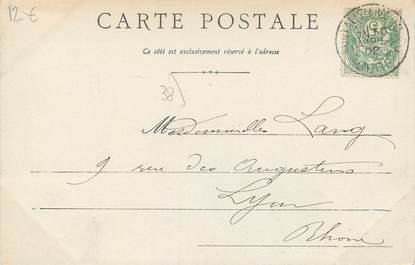 12€
CARTE POSTALE
Ce côté est exclusivement réservé à l'adresse
38
Mesdemoiselles Lang
9 rue des Augustins
Lyon
Rhône